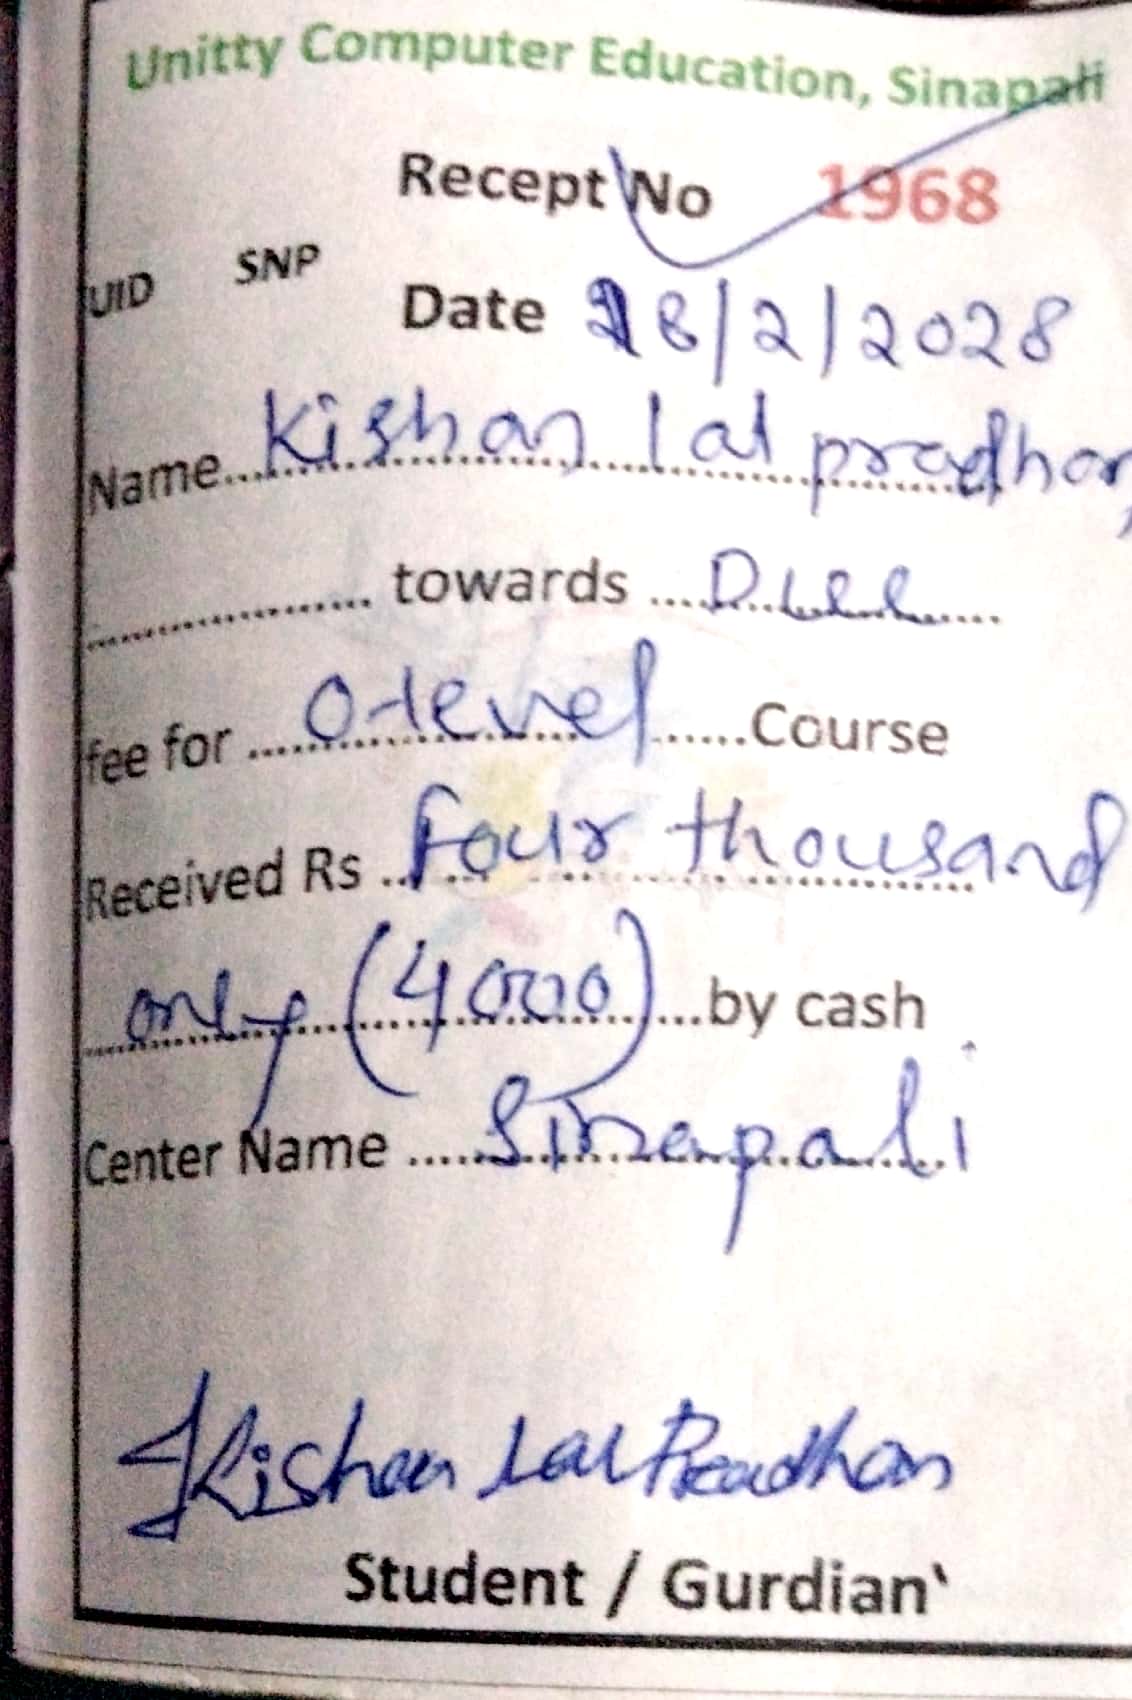 Unitty Computer Education, Sinapali
Recept No 1968
UID SNP
Date 18/2/2028
Name Kishan lal pradhan
towards
fee for O-level Course
Received Rs Four thousand
only (4000) by cash
Center Name Sinapali
Kishan Lal Pradhan
Student / Gurdian`